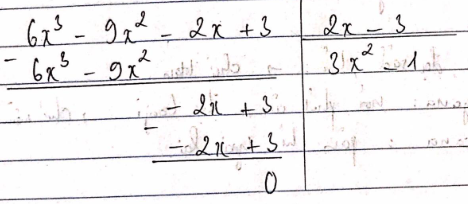 6x³ - 9x² - 2x + 3 | 2x - 3
- 6x³ - 9x² | 3x² - 1
- 2x + 3
-
- 2x + 3
0